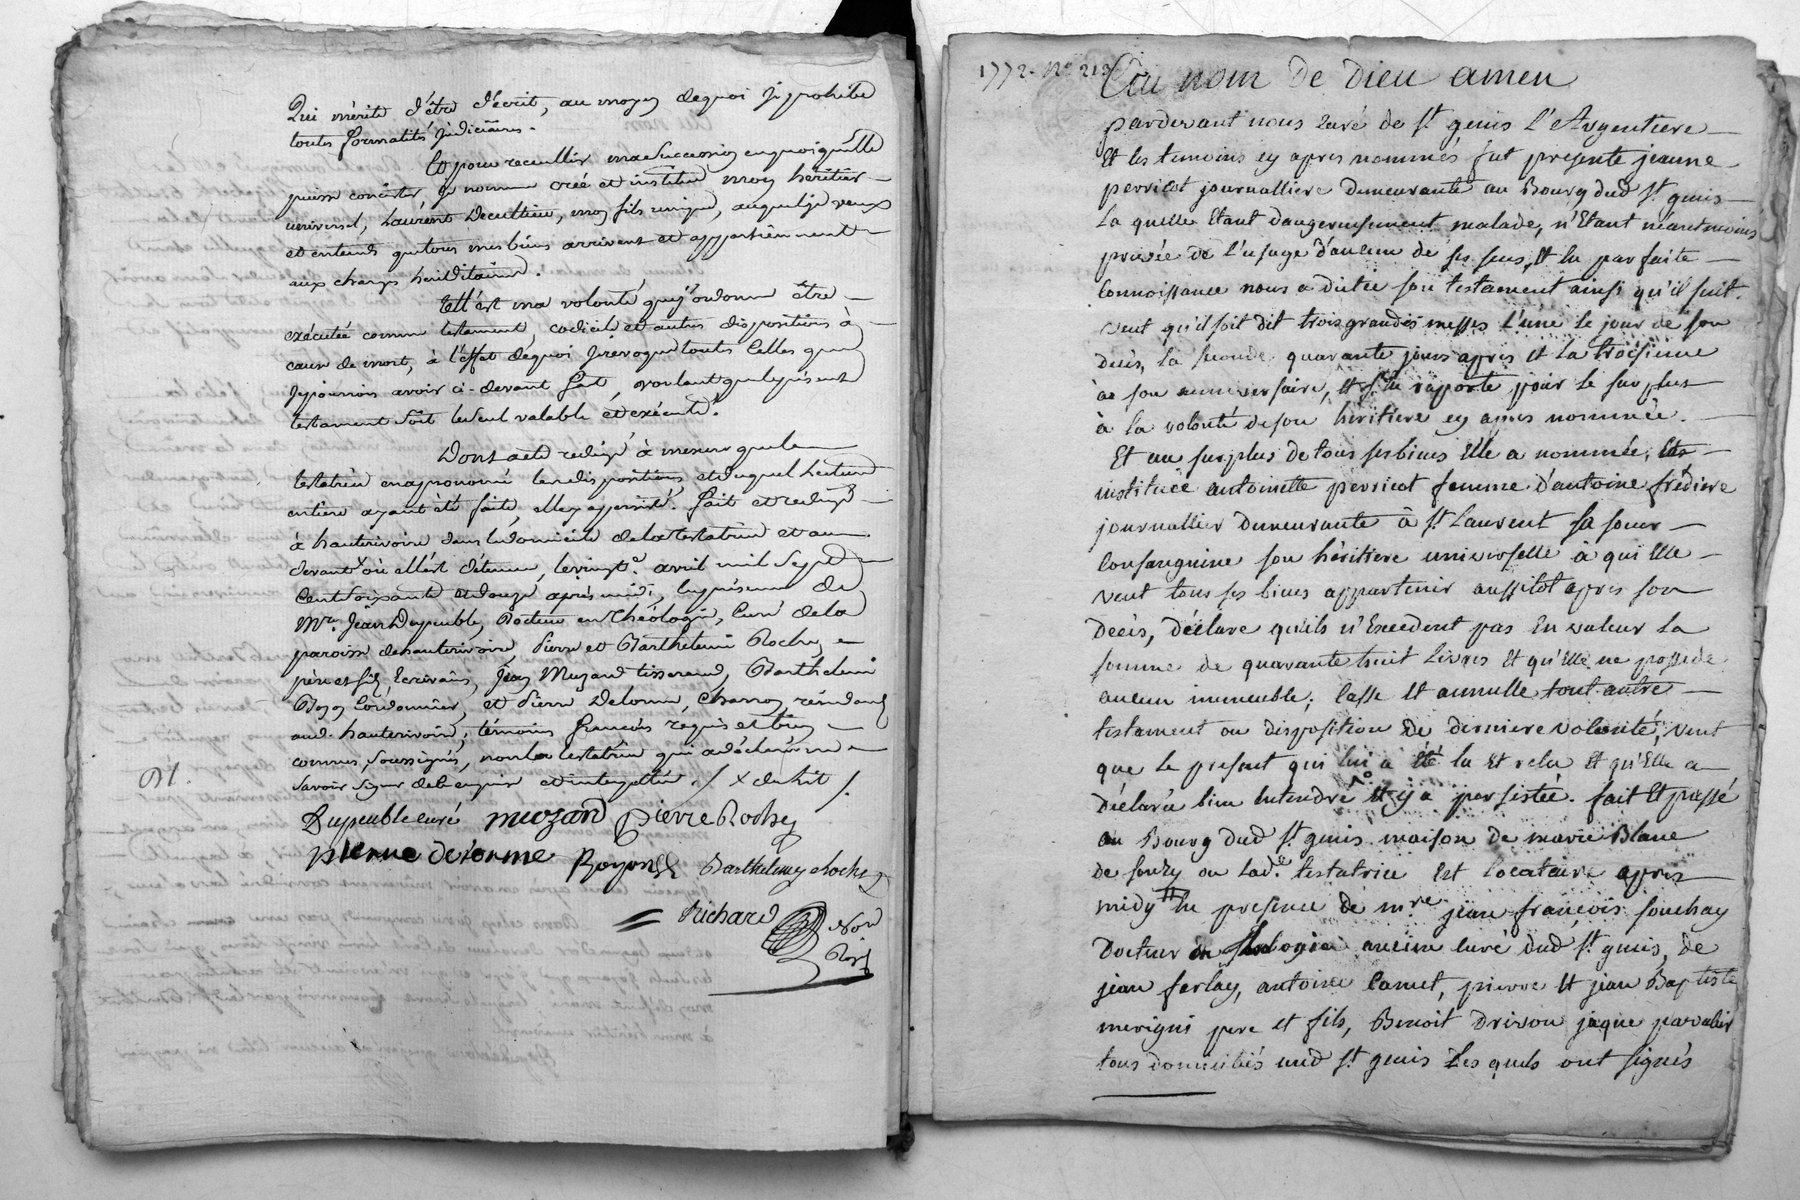 Qui mérite d'être décrit, au moyen dequoi je prohibe
toutes formalités judiciaires.
Et pour recueillir ma succession en quoi qu'elle
puisse consister, je nomme créé et institue mon héritier
universel, Laurent Decultieu, mon fils unique, auquel je veux
et entends que tous mes biens arrivent et appartiennent
aux charges héréditaires.
Telle est ma volonté que j'ordonne être
exécutée comme testament, codicile et autres dispositions à
cause de mort, à l'effet dequoi je revoque toutes celles que
je pourrois avoir ci-devant fait, voulant que le présent
testament soit le seul valable et exécuté.
Dont acte redigé à mesure que la
testatrice en a prononcé les dispositions, et duquel lecture
entière ayant été faite, elle y a persisté. fait et redigé
à hauterivoire dans le domicile de la testatrice et au
devant où elle est détenue, le vingt avril mil sept
cent soixante et douze après midi, en présence de
Mre. Jean Dupeuble, Docteur en Théologie, Curé de la
paroisse de hauterivoire, Pierre et Barthelemi Roche,
père et fils Ecrivains, Jean Muzard tisserand, Barthelemi
Boyon Cordonnier, et Pierre Delorme, Charron, résidants
aud. hauterivoire, témoins francois réquis et bien
connus, soussignés, non la testatrice qui a déclaré ne
savoir signer de ce enquise et interpellée ./ X du hit /.
Dupeuble curé muozard pierre Roche
pierre delorme Boyon Barthelemy Roche
Richard Nore
Royl
1772. No. 213
Au nom de dieu amen
pardevant nous curé de St. genis L'Argentiere
Et les temoins cy apres nommés fut presente jeanne
perricot journalliere demeurante au Bourg dud St. genis
La quelle Etant dangereusement malade, n'Etant néantmoins
privée de L'usage d'aucun de ses sens, Et en parfaite
Connoissance nous a dictée son testament ainsi qu'il suit.
veut qu'il soit dit trois grandes messes L'une le jour de son
decès, la seconde quarante jours apres Et la troisieme
à son anniversaire, Et s'en raporte pour le surplus
à la volonté de son héritiere cy apres nommée.
Et au surplus de tous ses biens Elle a nommée, Et
instituée antoinette perricot femme d'antoine frédiere
journallier demeurante à St. Laurent sa soeur
Consanguine son héritiere universelle à qui Elle
veut tous ses biens appartenir aussitot apres son
Decès, déclare qu'ils n'Excedent pas En valeur La
somme de quarante huit Livres Et qu'Elle ne possede
aucun immeuble; Casse Et annulle tout autre
testament ou disposition de derniere volonté, veut
que le present qui lui a été lu Et relu Et qu'Elle a
déclarée bien Entendre Et y a persistée. fait Et passé
au Bourg dud St. genis maison de marie Blanc
de ou lade. testatrice Est Locataire apres
midy En presence de mre. jean françois souchay
Docteur en theologie ancien curé dud St. genis, de
jean farlay, antoine Camet, pierre Et jean Baptiste
merigni pere et fils, Benoit Drivon jaque
tous domiciliés aud St. genis Les quels ont signés